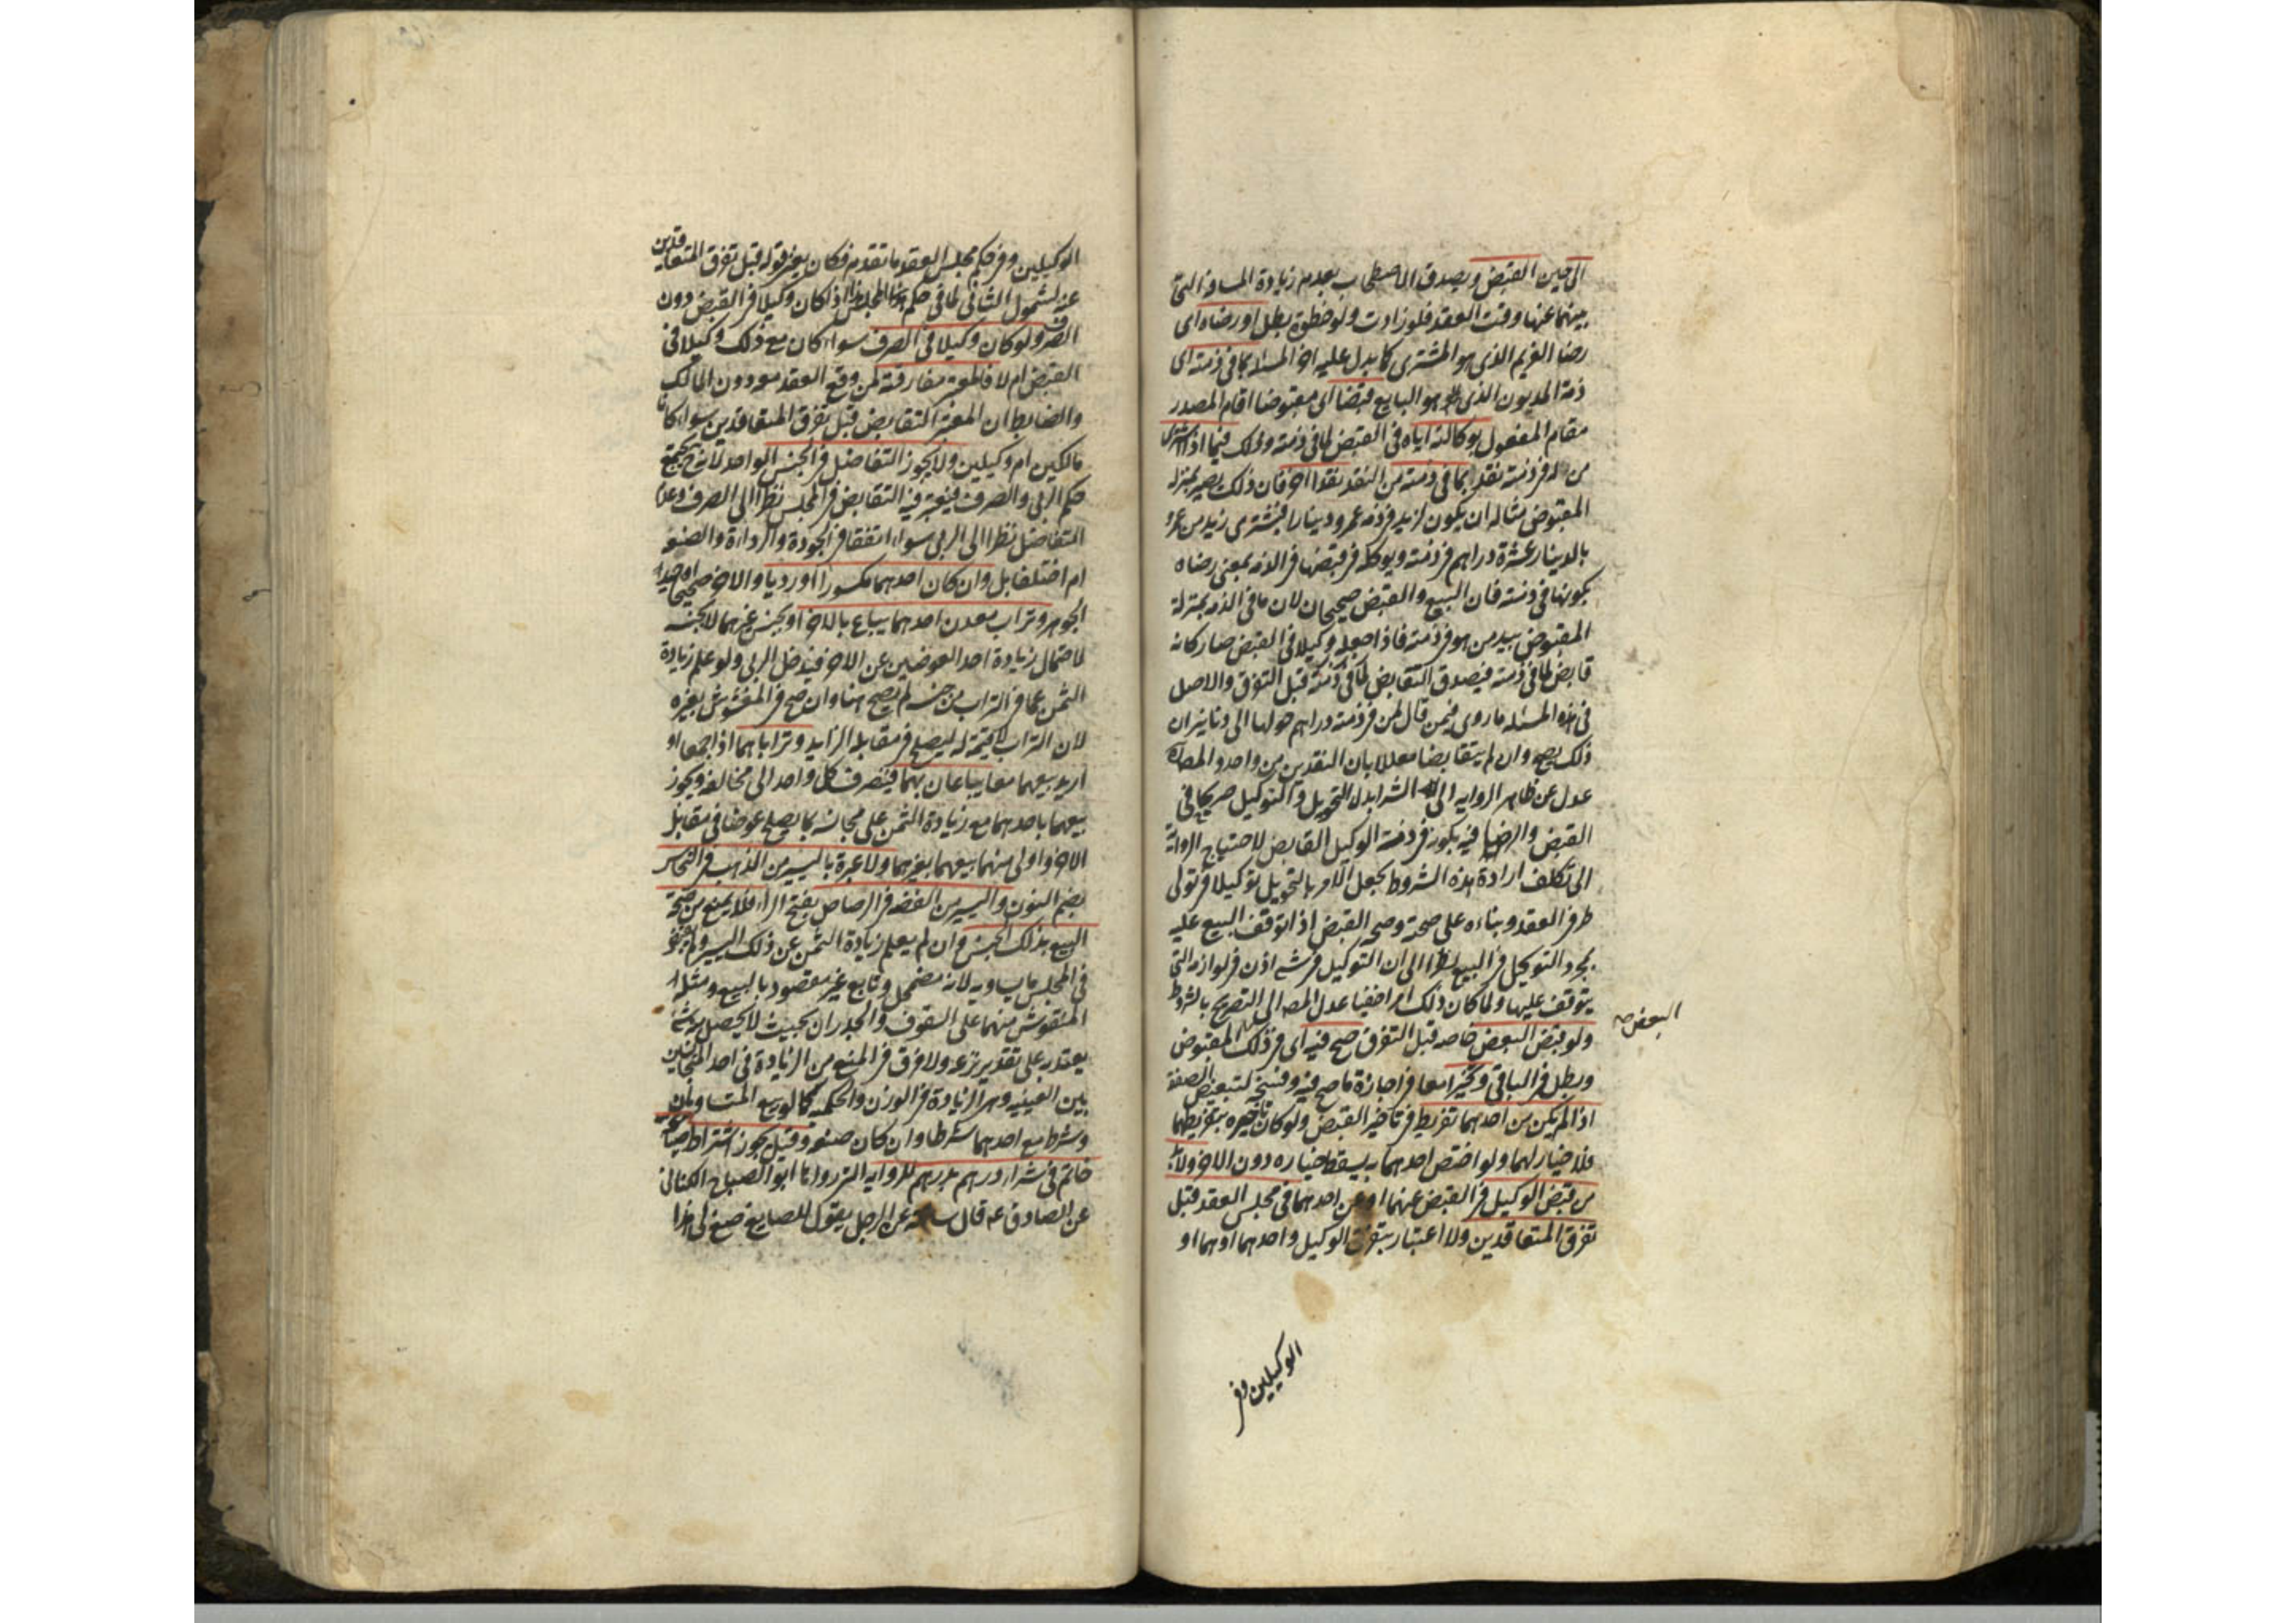 الى حين القبض ويصدق الاصطحاب بعدم زيادة المسافة التى
بينهما عنها وقت العقد فلو زادت ولو خطوة بطل او رضاه اى
رضا الغريم الذى هو المشترى كما يدل عليه اخر المسئله بما فى ذمته اى
ذمة المديون الذى هو البايع قبضا اى مقبوضا اقام المصدر
مقام المفعول بوكالته اياه فى القبض لما فى ذمته وذلك فيما اذا اشترى
من له فى ذمته نقد بما فى ذمته من النقد نقدا اخر فان ذلك يصير بمنزلة
المقبوض مثاله ان يكون لزيد فى ذمه عمرو دينارا فيشترى زيد من عمرو
بالدينار عشرة دراهم فى ذمته ويوكله فى قبضها فى الذمه بمعنى رضاه
بكونها فى ذمته فان البيع والقبض صحيحان لان ما فى الذمه بمنزلة
المقبوض بيد من هو فى ذمته فاذا جعله وكيلا فى القبض صار كانه
قابض لما فى ذمته فيصدق التقابض لما فى ذمته قبل التفرق والاصل
فى هذه المسئله ما روى فيمن قال لمن فى ذمته دراهم حولها الى دنانير ان
ذلك يصح وان لم يتقابضا معللا بان النقدين من واحد والمصه
عدل عن ظاهر الروايه الى الشرا بدل التحويل والتوكيل صريحا فى
القبض والرضا فيه بكونه فى ذمة الوكيل القابض لاحتياج الرواية
الى تكلف ارادة هذه الشروط بجعل الامر بالتحويل توكيلا فى تولى
طرفى العقد وبناءه على صحته وصحه القبض اذا توقف البيع عليه
بمجرد التوكيل فى البيع نظرا الى ان التوكيل فى شئ اذن فى لوازمه التى
يتوقف عليها ولما كان ذلك امرا خفيا عدل المصه الى التصريح بالشروط
ولو قبض البعض خاصه قبل التفرق صح فيه اى فى ذلك المقبوض
البعض صح
وبطل فى الباقى وتخيرا معا فى اجازة ما صح فيه وفسخه لتبعض الصفقة
اذا لم يكن من احدهما تفريط فى تاخير القبض ولو كان تاخيره بتفريطهما
فلا خيار لهما ولو اختص احدهما به سقط خياره دون الاخر ولا بد
من قبض الوكيل فى القبض عنهما او عن احدهما فى مجلس العقد قبل
تفرق المتعاقدين ولا اعتبار بتفرق الوكيل واحدهما او هما او
الوكيلين وفى
الوكيلين وفى حكم مجلس العقد ما تقدم فكان يغنى قوله قبل تفرق المتعاقدين
عنه لشمول الثانى لما فى حكم المجلس هذا اذا كان وكيلا فى القبض دون
الصرف ولو كان وكيلا فى الصرف سواء كان مع ذلك وكيلا فى
القبض ام لا فالمعتبر مفارقته لمن وقع العقد معه دون المالك
والضابط ان المعتبر التقابض قبل تفرق المتعاقدين سواء كانا
مالكين ام وكيلين ولا يجوز التفاضل فى الجنس الواحد لانه ح يجتمع
حكم الربى والصرف فيعتبر فيه التقابض فى المجلس نظرا الى الصرف وعدم
التفاضل نظرا الى الربى سواء اتفقا فى الجودة والرداءة والصنعه
ام اختلفا بل وان كان احدهما مكسورا او رديا والاخر صحيحا او جيد
الجوهر وتراب معدن احدهما يباع بالاخر او بجنس غيرهما لا بجنسه
لاحتمال زيادة احد العوضين عن الاخر فيدخل الربى ولو علم زيادة
الثمن عما فى التراب من جنسه لم يصح هنا وان صح فى المغشوش بغيره
لان التراب لا قيمة له ليصلح فى مقابله الزايد وتراباهما اذا جمعا او
اريد بيعهما معا يباعان بهما فينصرف كل واحد الى مخالفه ويجوز
بيعهما باحدهما مع زيادة الثمن على مجانسه بما يصلح عوضا فى مقابل
الاخر واولى منهما بيعهما بغيرهما ولا عبرة باليسير من الذهب فى النحاس
بضم النون واليسير من الفضه فى الرصاص بفتح الراء فلا يمنع من صحة
البيع بذلك الجنس وان لم يعلم زيادة الثمن عن ذلك اليسير ولم يقبض
فى المجلس ما يساويه لانه مضمحل وتابع غير مقصود بالبيع ومثله
المنقوش منهما على السقوف والجدران بحيث لا يحصل منه شئ
يعتد به على تقدير نزعه ولا فرق فى المنع من الزيادة فى احد المتجانسين
بين العينيه وهى الزيادة فى الوزن والحكميه كما لو بيع المتساويان
وشرط مع احدهما شرطا وان كان صنعه وقيل يجوز اشتراط صياغة
خاتم فى شراء درهم بدرهم للروايه التى رواها ابو الصباح الكنانى
عن الصادق عه قال سالته عن الرجل يقول للصايغ صغ لى هذا